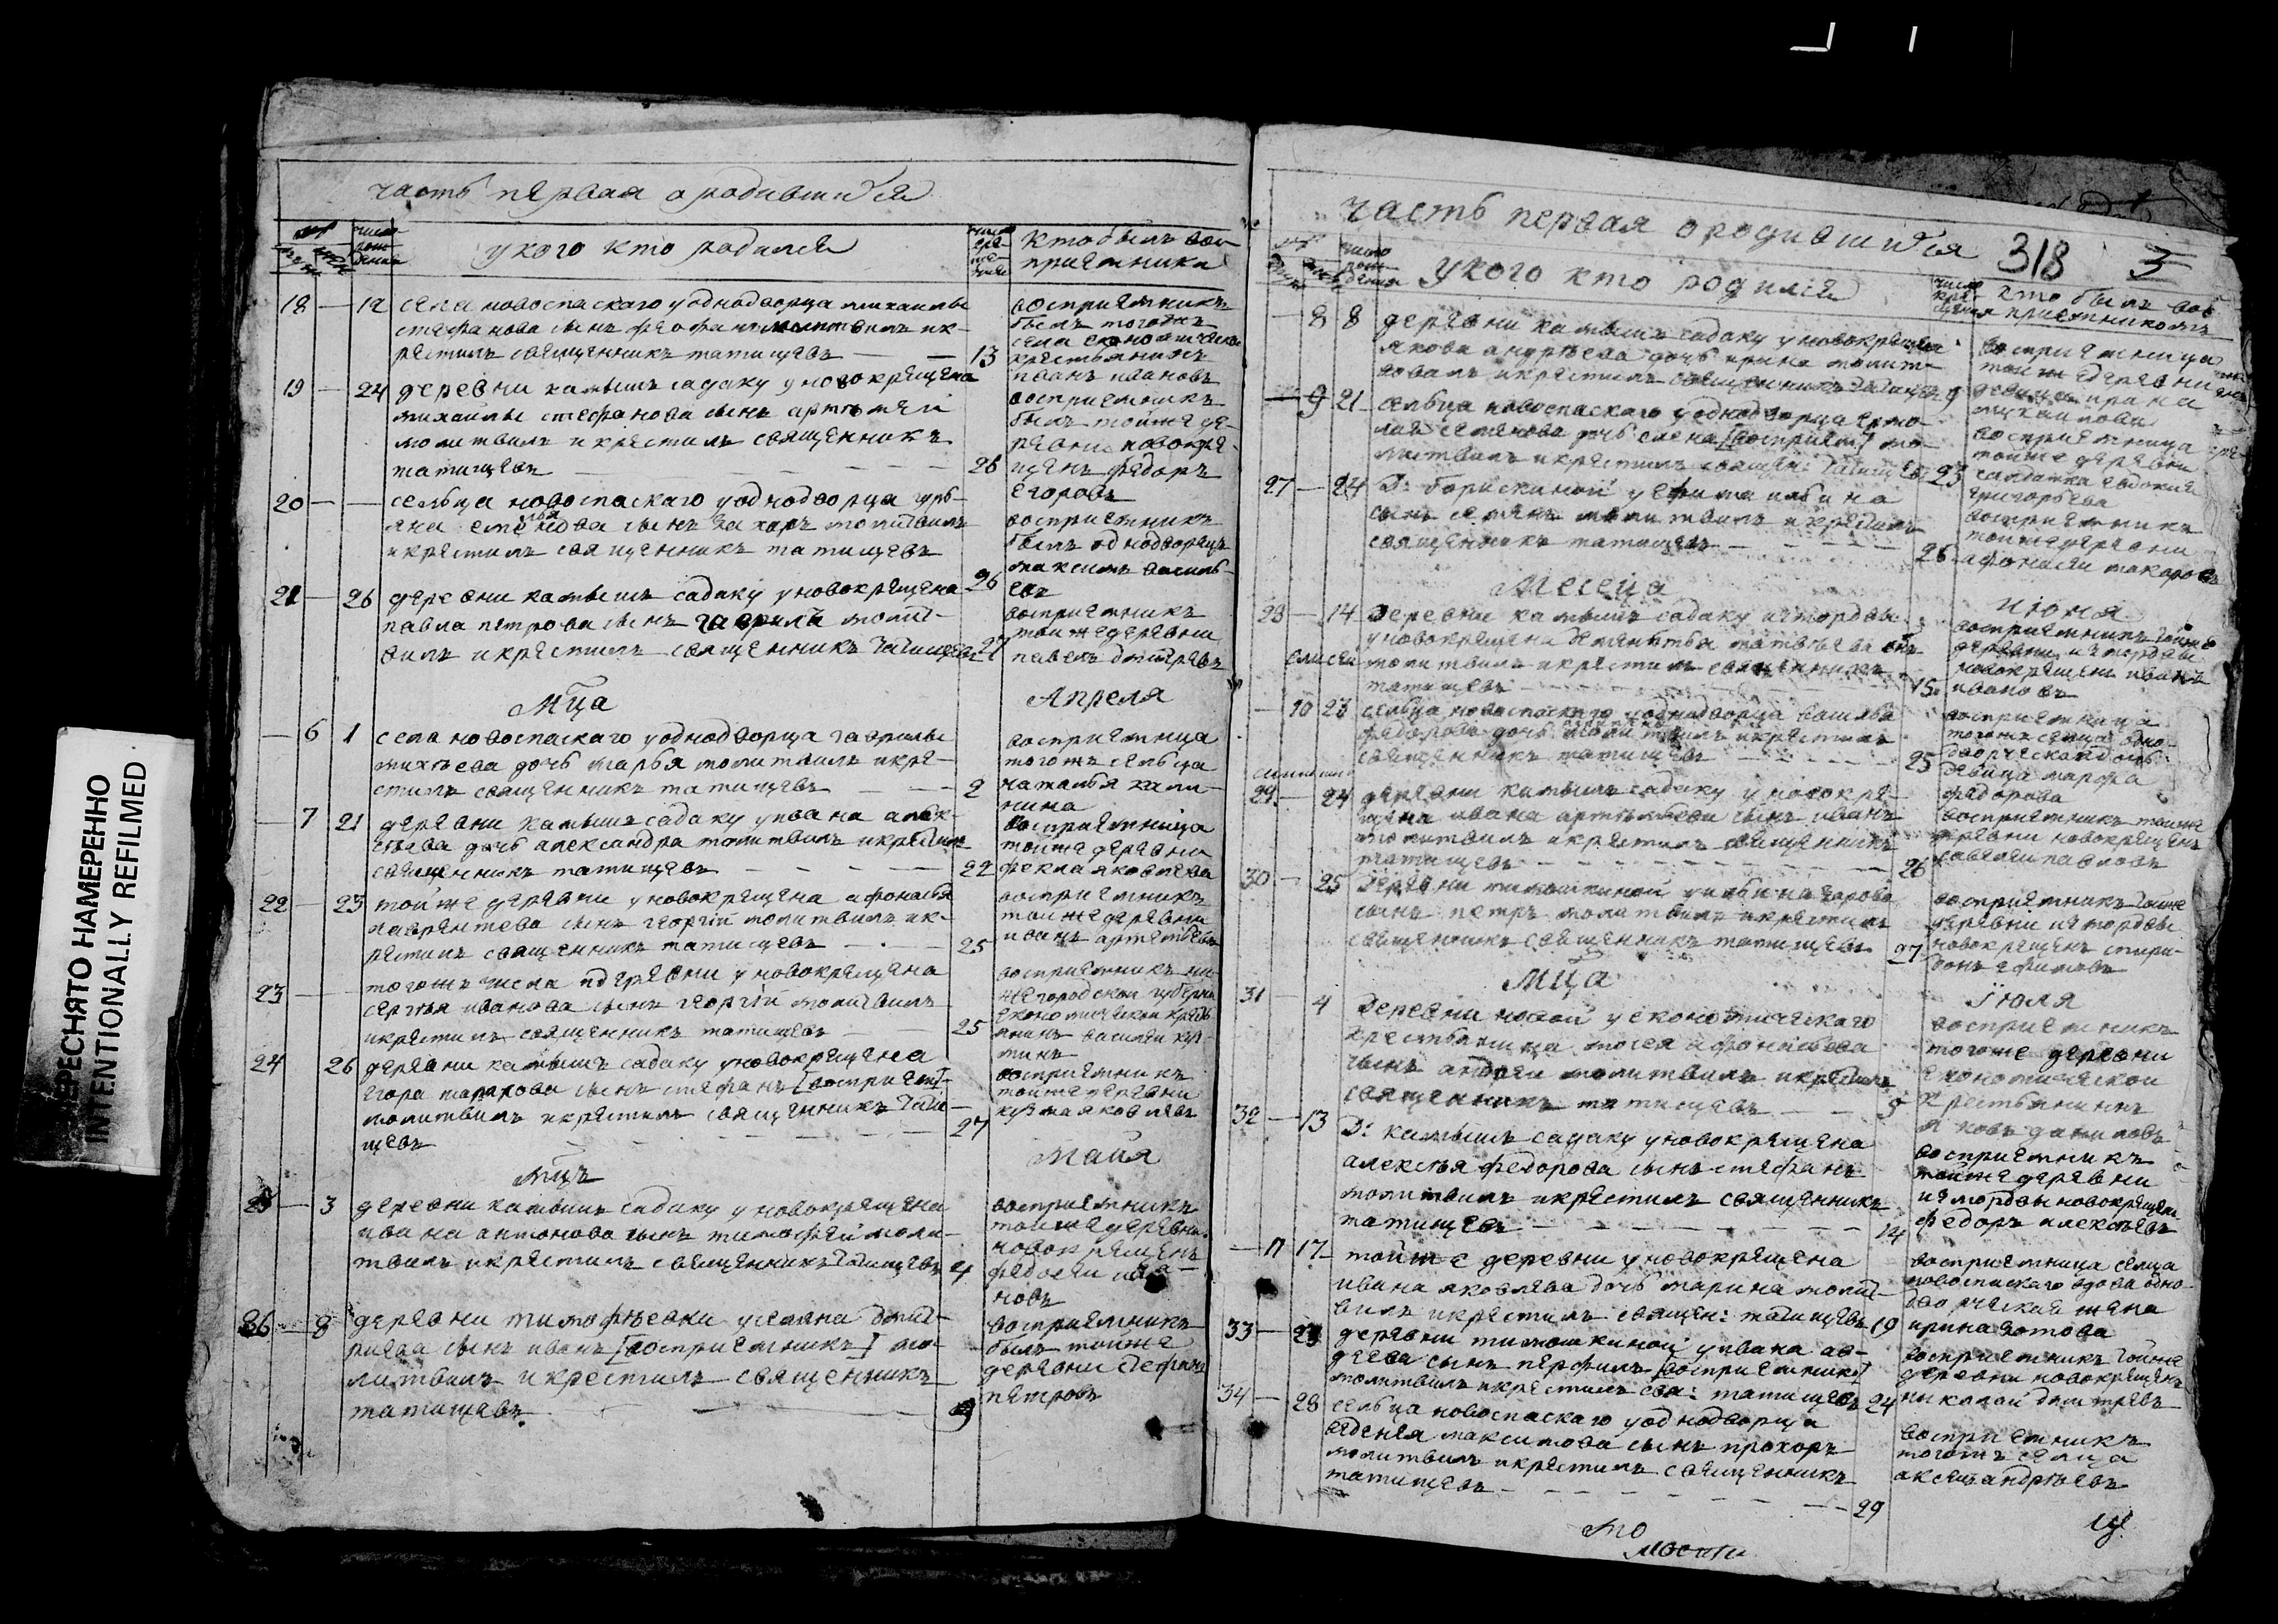 ПЕРЕСНЯТО НАМЕРЕННО
INTENTIONALLY REFILMED
часть первая о родившихся
число рождения
у кого кто родился
кто был восприемника
18 — 12 села новоспаскаго у однодворца михаилы
стефанова сынъ феофанъ молитвилъ ик-
рестилъ священникъ татищевъ — — 13
восприемникъ
былъ тогожъ
села економическа
крестьянинъ
иванъ ивановъ
19 — 24 деревни камышъ садаку у новокрещена
михаилы стефанова сынъ артемей
молитвилъ и крестилъ священникъ
татищевъ — — — 26
восприемникъ
былъ тойже де-
ревни новокре-
щенъ федоръ
егоровъ
20 — — сельца новоспаскаго у однодворца
сынъ захаръ молитвилъ
и крестилъ священникъ татищевъ
26
восприемникъ
былъ однодворецъ
максимъ василь-
евъ
21 — 26 деревни камышъ садаку у новокрещена
павла петрова сынъ гаврилъ молит-
вилъ и крестилъ священникъ татищевъ 27
восприемникъ
тойже деревни
павелъ дмитревъ
Мца Апреля
— 6 1 села новоспаскаго у однодворца гаврилы
михеева дочь марья молитвилъ и кре-
стилъ священникъ татищевъ — — 2
восприемница
тогожъ сельца
наталья кали-
нина
— 7 21 деревни камышъ садаку у ивана алек-
сеева дочь александра молитвилъ и крестилъ
священникъ татищевъ — — — 22
восприемница
тойже деревни
фекла яковлева
22 — 23 тойже деревни у новокрещена афонасья
лаврентева сынъ георгій молитвилъ ик-
рестилъ священникъ татищевъ — . — 25
восприемникъ
тойже деревни
иванъ артемьевъ
23 — — тогожъ числа и деревни у новокрещена
сергея иванова сынъ георгій молитвилъ
и крестилъ священникъ татищевъ 25
восприемникъ ни-
жегородской губерни
економической кресть
янинъ василеи
24 26 деревни камышъ садаку у новокрещена
егора сынъ стефанъ [восприем]-
молитвилъ и крестилъ священникъ тати-
щевъ — — — 27
восприемникъ
тойже деревни
кузма яковлевъ
мцъ маия
25 — 3 деревни камышъ садаку у новокрещена
ивана антонова сынъ тимофей моли-
твилъ и крестилъ священникъ татищевъ 4
восприемникъ
тойже деревни
новокрещенъ
федосеи ива-
новъ
26 — 8 деревни тимофеевки у семена дмит-
риева сынъ иванъ [восприемникъ] мо-
литвилъ и крестилъ священникъ
татищевъ — — 9
восприемникъ
былъ тойже
деревни
петровъ
часть первая о родившихся
318 3
у кого кто родился
кто былъ вос
приемникомъ
— 8 8 деревни камышъ садаку у новокрещена
якова андреева дочь ирина молит-
вовалъ и крестилъ священникъ татищевъ 9
восприемница
тойже деревни
девица ирина
михаилова
— 9 21 сельца новоспаскаго у однодворца ермо-
лая семенова дочь елена [восприем] мо-
литвилъ и крестилъ священ: татищевъ 23
восприемница
тойже деревни
салдатка евдокия
григорьева
27 — 24 Д: борискиной у ефима ильина
сынъ семенъ молитвилъ и крестилъ
священникъ татищевъ — — — 26
восприемникъ
тойже деревни
афонасеи макаровъ
Месеца Июня
28 — 14 деревни камышъ садаку из мордвы
у новокрещена матвеева сынъ
елисеи молитвилъ и крестилъ священникъ
татищевъ — — — 15
восприемникъ тойже
деревни из мордвы
новокрещенъ иванъ
ивановъ
— 10 23 сельца новоспаскаго у однодворца василья
федорова дочь молитвилъ и крестилъ
священникъ татищевъ — — — 25
восприемница
тогожъ сельца одно-
дворческая дочь
девица марфа
федорова
29 — 24 деревни камышъ садаку у новокре-
щена ивана артемьева сынъ иванъ
молитвилъ и крестилъ священникъ
татищевъ — — — 26
восприемникъ тойже
деревни новокрещенъ
савелеи павловъ
30 — 25 деревни тимошкиной у ильи назарова
сынъ петръ молитвилъ и крестилъ
священникъ священникъ татищевъ 27
восприемникъ тойже
деревни из мордвы
новокрещенъ спири-
донъ ефимовъ
Мца Iюля
31 — 4 деревни новой у економическаго
крестьянина мосея афонасьева
сынъ андреи молитвилъ и крестилъ
священникъ татищевъ — — 5
восприемникъ
тогоже деревни
економической
крестьянинъ
яковъ даниловъ
32 — 13 Д: камышъ садаку у новокрещена
алексея федорова сынъ стефанъ
молитвилъ и крестилъ священникъ
татищевъ — — — 14
восприемникъ
тойже деревни
из мордвы новокрещенъ
федоръ алексеевъ
— 11 17 тойже деревни у новокрещена
ивана яковлева дочь марина молит-
вилъ и крестилъ священ: татищевъ 19
восприемница селца
новоспаскаго вдова одно-
дворческая жена
ирина зотова
33 — 23 деревни тимошкиной у ивана ав-
деева сынъ перфилъ [восприемникъ]
молитвилъ и крестилъ свя: татищевъ 24
восприемникъ тойже
деревни новокрещенъ
николай дмитревъ
34 — 28 сельца новоспаскаго у однодворца
евдекея максимова сынъ прохоръ
молитвилъ и крестилъ священникъ
татищевъ — — — 29
восприемникъ
тогожъ селца
аксенъ андреевъ